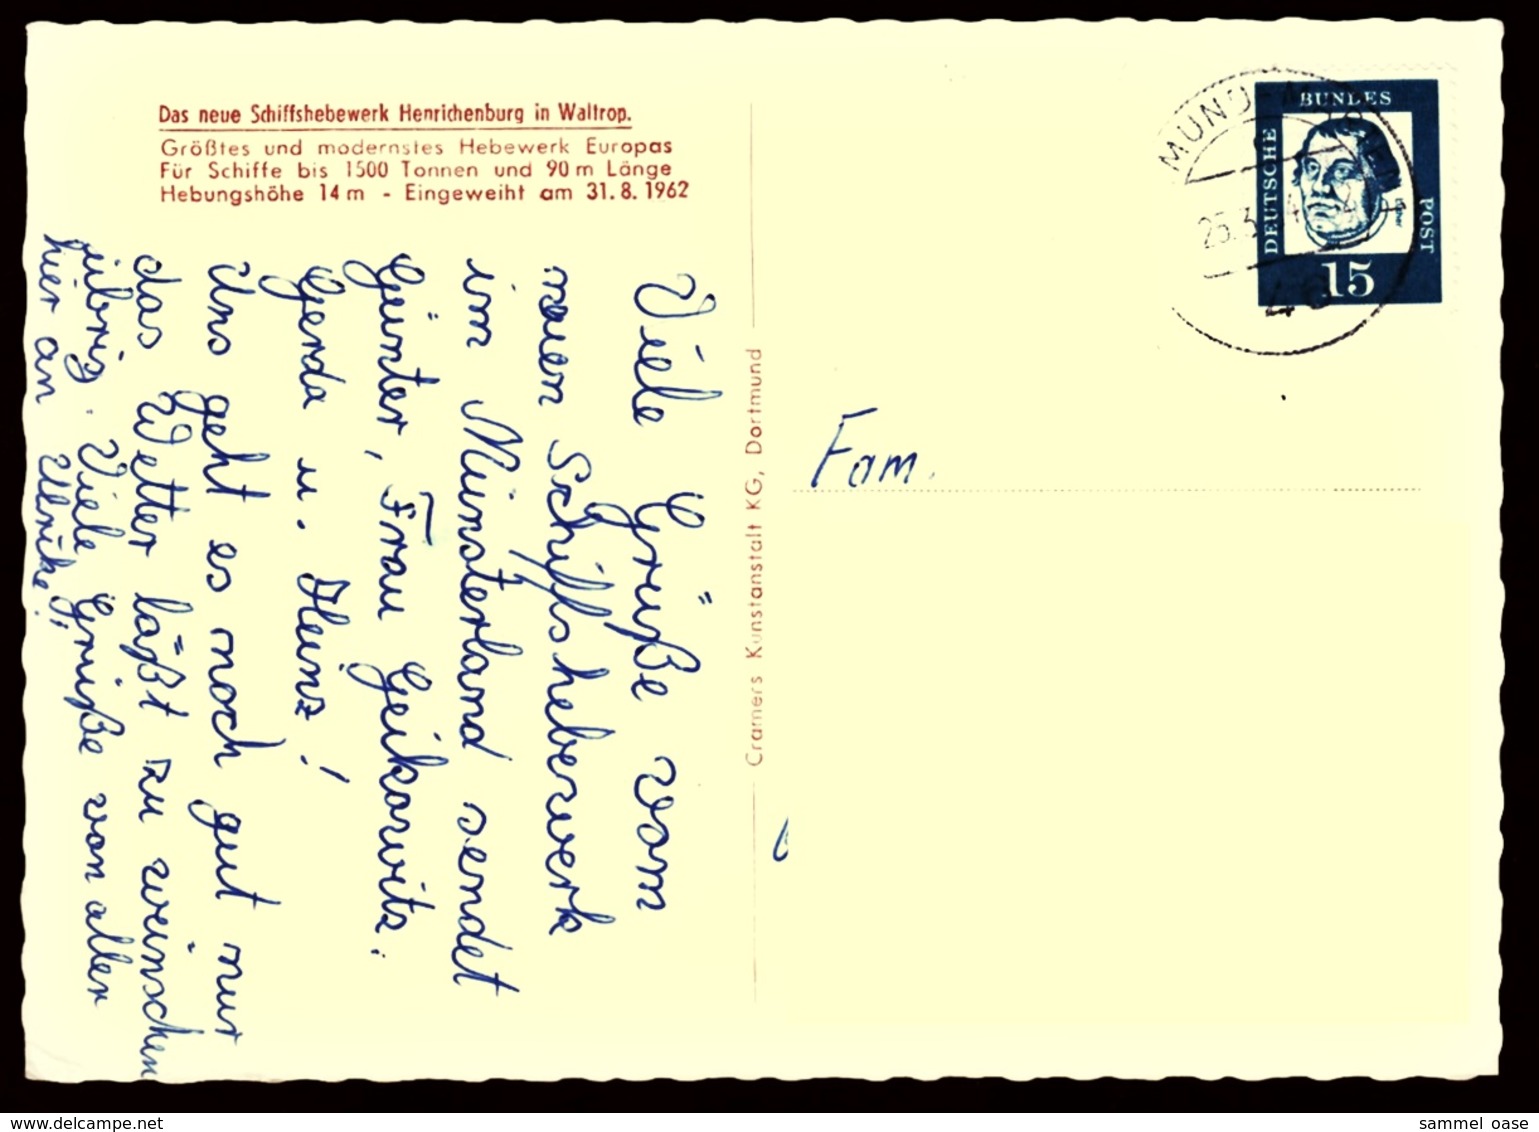 Das neue Schiffshebewerk Henrichenburg in Waltrop.
Größtes und modernstes Hebewerk Europas
Für Schiffe bis 1500 Tonnen und 90 m Länge
Hebungshöhe 14 m - Eingeweiht am 31. 8. 1962
Viele Grüße vom
neuen Schiffshebewerk
im Münsterland sendet
Günter, Frau Geikowitz.
Gerda u. Heinz!
Uns geht es noch gut nur
das Wetter läßt zu wünschen
übrig. Viele Grüße von allen
hier an Ulrike!
Cramers Kunstanstalt KG, Dortmund
Fam.
DEUTSCHE
BUNDES
POST
15
Luther
25.3.
46
www.delcampe.net
sammel oase